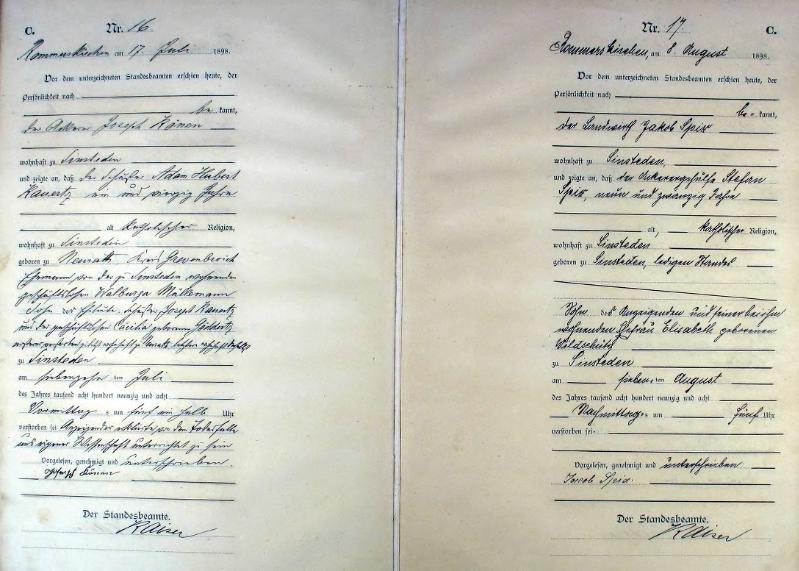 C. Nr. 16
Rommerskirchen am 17. Juli 1898.
Vor dem unterzeichneten Standesbeamten erschien heute, der
Persönlichkeit nach
be kannt,
der Ackerer Joseph Könen
wohnhaft zu Sinsteden
und zeigte an, daß der Schäfer Adam Hubert
Kauertz, ein und vierzig Jahre
alt Katholischer Religion,
wohnhaft zu Sinsteden
geboren zu Neurath Kreis Grevenbroich
Ehemann von der zu Sinsteden wohnenden
geschäftslosen Walburga
Sohn des Schäfer Joseph Kauertz
und der geschäftslosen Cäcilia geborenen
zu Sinsteden
am siebenzehn ten Juli
des Jahres tausend acht hundert neunzig und acht
Vormittag s um fünf ein halb Uhr
verstorben sei Anzeigender erklärte, von dem Todesfalle
aus eigener Wissenschaft unterrichtet zu sein
Vorgelesen, genehmigt und unterschrieben.
Joseph Könen
Der Standesbeamte.
Kaiser
Nr. 17. C.
Rommerskirchen, am 8. August 1898.
Vor dem unterzeichneten Standesbeamten erschien heute, der
Persönlichkeit nach
be= kannt,
der Landwirth Jakob Spix
wohnhaft zu Sinsteden,
und zeigte an, daß der Ackerergehülfe Stefan
Spix, neun und zwanzig Jahre
alt, katholischer Religion,
wohnhaft zu Sinsteden
geboren zu Sinsteden, ledigen Standes
Sohn des Anzeigenden und seiner bei ihm
wohnenden Ehefrau Elisabeth geborenen
zu Sinsteden
am sieben ten August
des Jahres tausend acht hundert neunzig und acht
Nachmittags um fünf Uhr
verstorben sei
Vorgelesen, genehmigt und unterschrieben
Jacob Spix.
Der Standesbeamte.
Kaiser